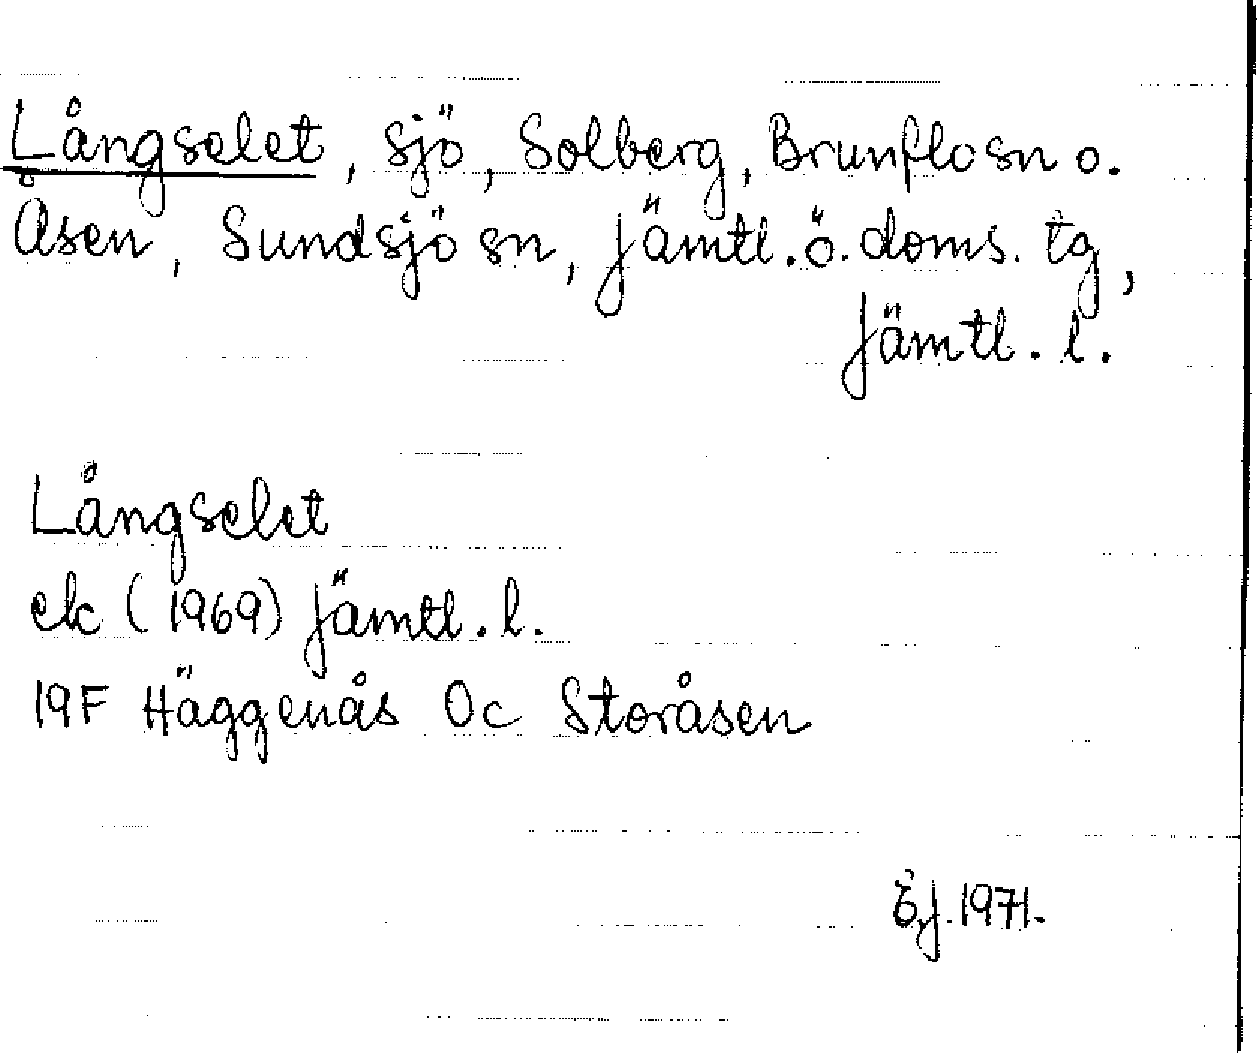 Långselet, sjö, Solberg, Brunflo sn o.
Åsen, Sundsjö sn, Jämtl. ö. doms. tg,
Jämtl. l.
Långselet
ek (1969) Jämtl. l.
19F Häggenås 0c Storåsen
Ö.J. 1971.